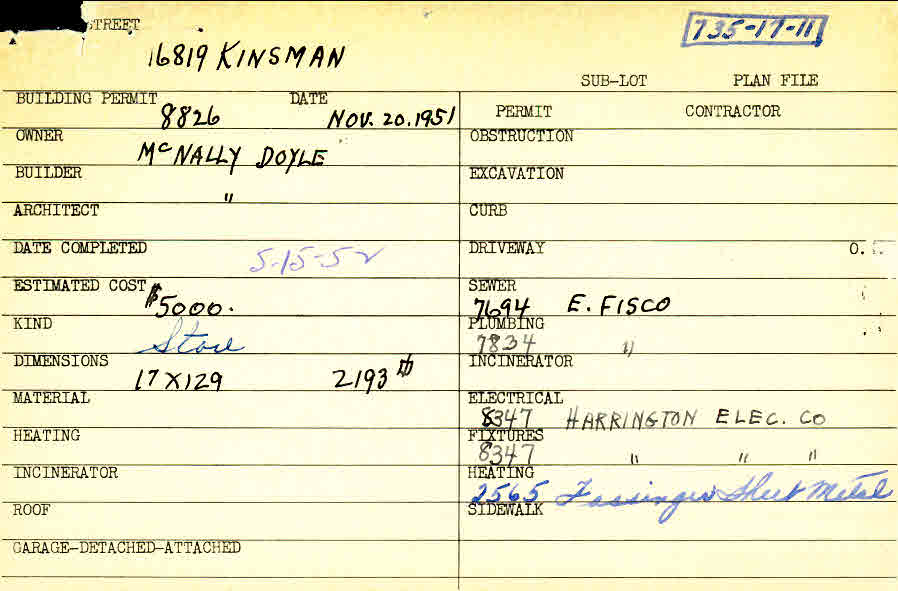 STREET
16819 KINSMAN
735-17-11
SUB-LOT PLAN FILE
BUILDING PERMIT DATE
8826 NOV. 20. 1951
PERMIT CONTRACTOR
OWNER
McNALLY DOYLE
OBSTRUCTION
BUILDER
"
EXCAVATION
ARCHITECT
CURB
DATE COMPLETED
5-15-52
DRIVEWAY
ESTIMATED COST
$5000.
SEWER
7694 E. FISCO
KIND
Store
PLUMBING
7834 "
DIMENSIONS
17 X 129 2193
INCINERATOR
MATERIAL
ELECTRICAL
8347 HARRINGTON ELEC. CO
HEATING
FIXTURES
8347 " " "
INCINERATOR
HEATING
2565 Fassinger Sheet Metal
ROOF
SIDEWALK
GARAGE-DETACHED-ATTACHED